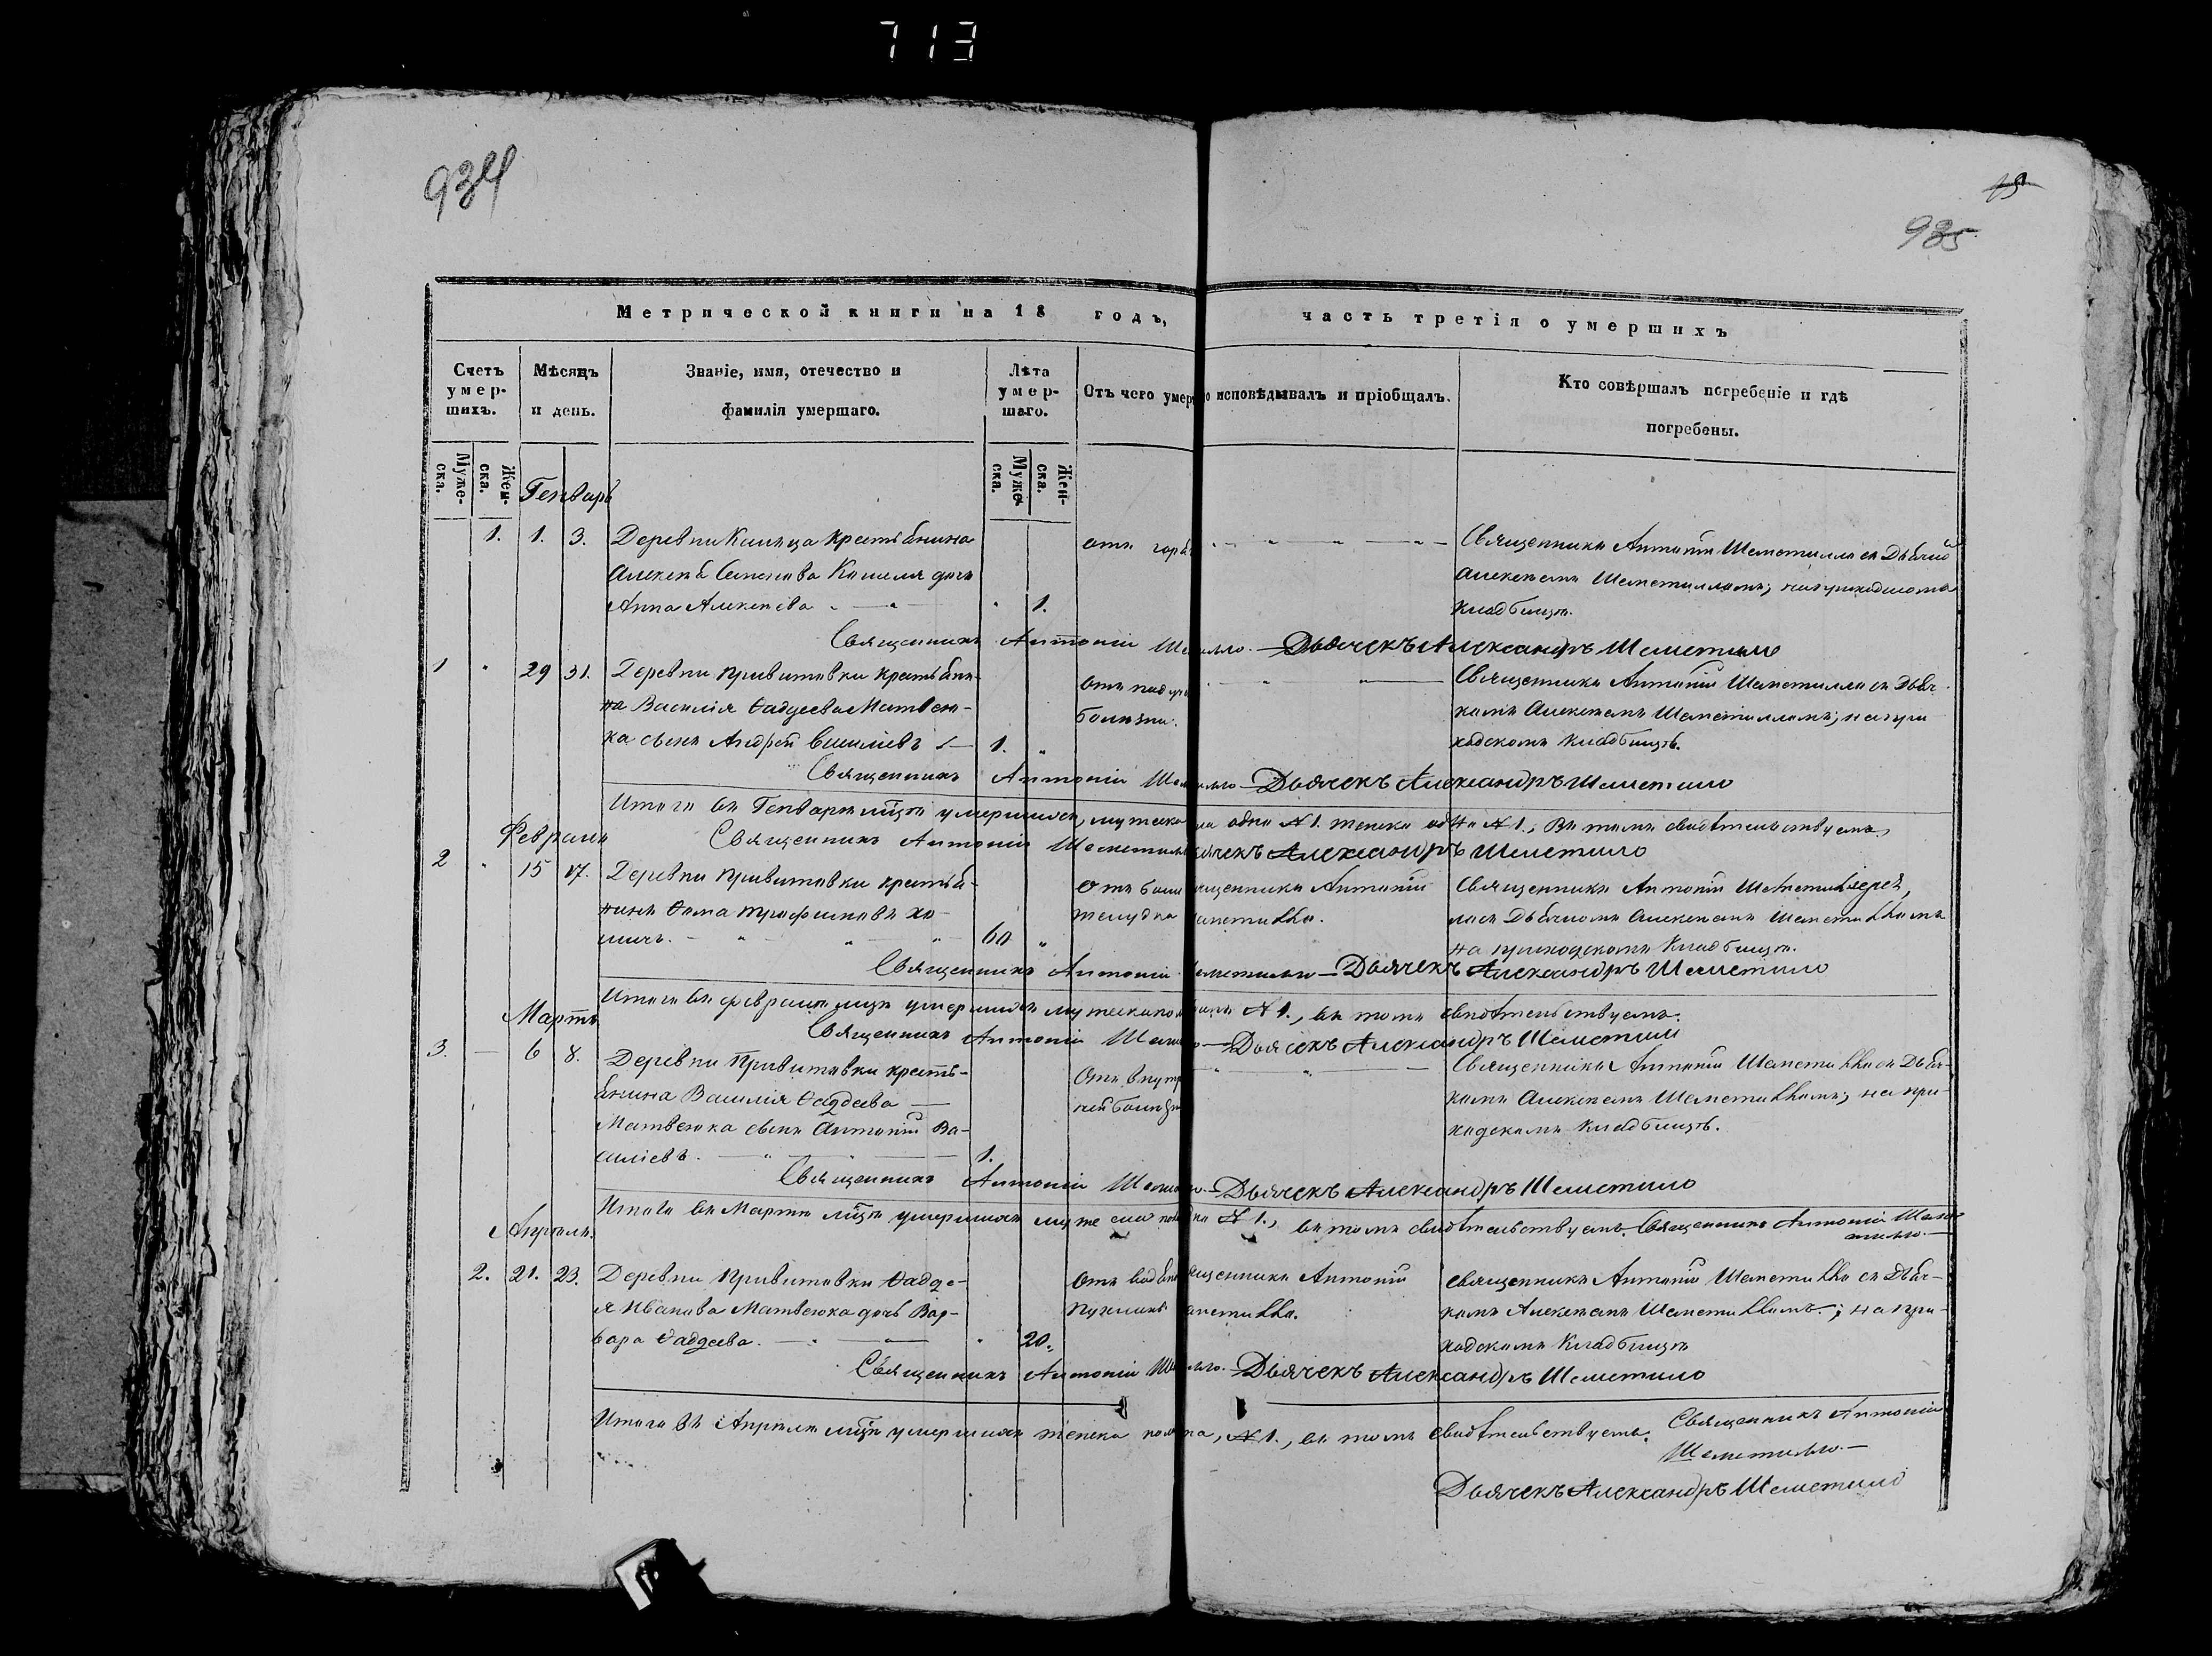 713
934
15
935
Метрической книги на 18 годъ, часть третія о умершихъ
Счетъ умер- шихъ.
Мѣсяцъ и день.
Званіе, имя, отечество и фамилія умершаго.
Лѣта умер- шаго.
Отъ чего умер
о исповѣдывалъ и пріобщалъ.
Кто совѣршалъ погребеніе и гдѣ погребены.
Муже- ска.
Жен- ска.
Муже- ска.
Жен- ска.
Генварь
1. 1. 3. Деревни крестьянина
Алексѣя Семенова дочь
Анна Алексѣева 1.
отъ
Священникъ Антоній Шеметилло съ
Алексемъ Шеметилломъ; на приходскомъ
кладбищѣ.
Священникъ Антоній Дьячекъ Александръ Шеметилло
1 " 29 31. Деревни Привитовки крестьяни-
на Василія Ѳаддеева Матвею-
ка сынъ Андрей Василіевъ 1. "
Отъ
болѣзни.
Священникъ Антоній Шеметилло съ Дьяч-
комъ Алексемъ Шеметилломъ; на при-
ходскомъ кладбищѣ.
Священникъ Антоній Дьячекъ Александръ Шеметилло
Итого въ Генварѣ мцѣ умершихъ, мужеска одна N 1. женска одна N 1., въ томъ свидѣтельствуемъ,
Священникъ Антоній Шеметилло Александръ Шеметилло
Февраль
2 " 15 17. Деревни Привитовки крестья-
нинъ Ѳома Трофимовъ Хо-
мичъ. 60 "
Отъ боли
желудка
щенникъ Антоній
метилло.
Священникъ Антоній
Дьячкомъ Алексемъ Шеметилломъ
на приходскомъ кладбищѣ.
Священникъ Антоній Дьячекъ Александръ Шеметилло
Итого въ февралѣ мцѣ умершихъ мужеска пола N 1., въ томъ свидѣтельствуемъ.
Мартъ
Священникъ Антоній Дьячекъ Александръ Шеметилло
3. 6 8. Деревни Привитовки кресть-
янина Василія Ѳаддеева
Матвеюка сынъ Антоній Ва-
силіевъ. 1.
Отъ внутр
ней болѣзн
Священникъ Антоній Шеметилло съ Дьяч-
комъ Алексемъ Шеметилломъ; на при-
ходскомъ кладбищѣ.
Священникъ Антоній Дьячекъ Александръ Шеметилло
Итого въ Мартѣ мцѣ умершихъ мужеска N 1., въ томъ свидѣтельствуемъ. Священникъ Антоній Шеме-
тилло.
Апрѣль.
2. 21. 23. Деревни Привитовки Ѳадде-
я Иванова Матвеюка дочь Вар-
вара Ѳаддеева. 20.
Отъ водян
пухлины
щенникъ Антоній
метилло.
священникъ Антоній Шеметилло съ Дьяч-
комъ Алексемъ Шеметилломъ; на при-
ходскомъ кладбищѣ
Священникъ Антоній Дьячекъ Александръ Шеметилло
Итого въ Апрѣлѣ мцѣ умершихъ женска N 1., въ томъ свидѣтельствуемъ. Священникъ Антоній
Шеметилло.
Дьячекъ Александръ Шеметилло